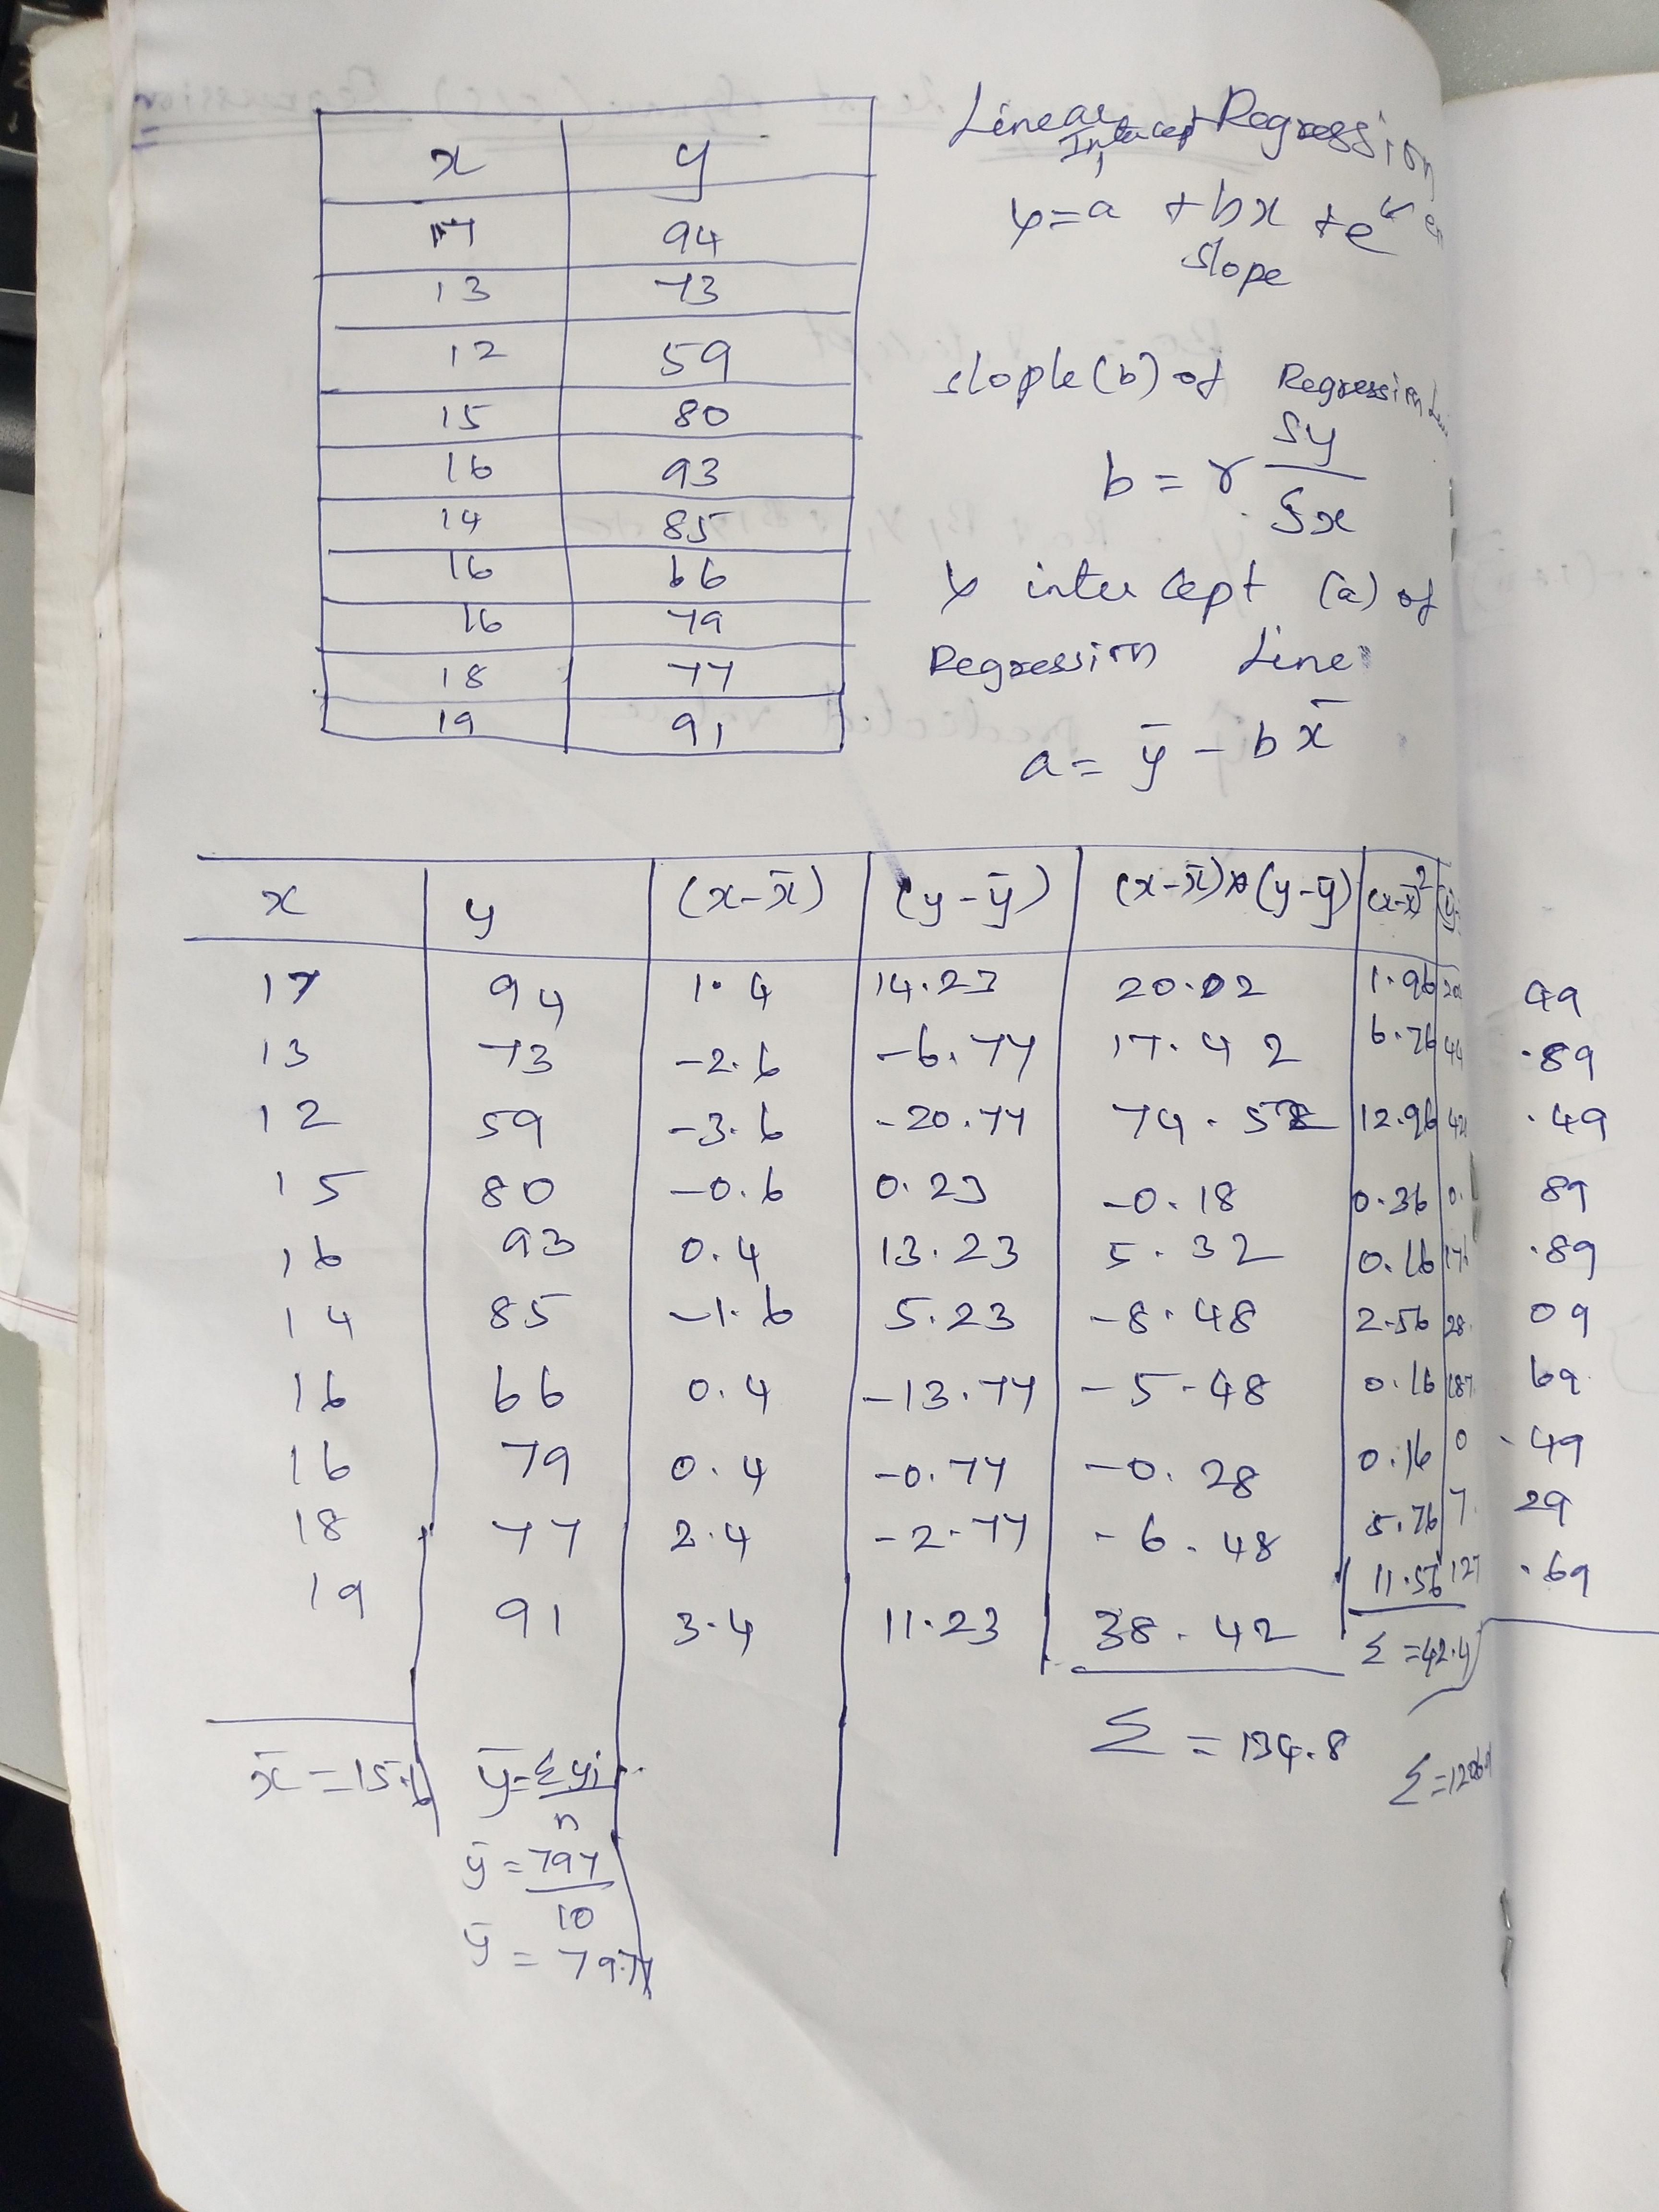 x y
17 94
13 73
12 59
15 80
16 93
14 85
16 66
16 79
18 77
19 91
Linear Regression
Intercept
y=a +bx +e
slope
slople(b) of Regression
b = r sy
sx
y intercept (a) of
Regression Line
a = ȳ - b x̄
x y (x-x̄) (y-ȳ) (x-x̄)*(y-ȳ) (x-x̄)²
17 94 1.4 14.23 20.02 1.96 20 49
13 73 -2.6 -6.77 17.42 6.76 44 .89
12 59 -3.6 -20.77 74.52 12.96 42 .49
15 80 -0.6 0.23 -0.18 0.36 0. 89
16 93 0.4 13.23 5.32 0.16 176 .89
14 85 -1.6 5.23 -8.48 2.56 28. 09
16 66 0.4 -13.77 -5.48 0.16 187. 69
16 79 0.4 -0.77 -0.28 0.16 0 .49
18 77 2.4 -2.77 -6.48 5.76 7. 29
19 91 3.4 11.23 38.42 11.56 127 .69
Σ =42.4
Σ = 134.8
x̄ =15.6 ȳ=Σyi
n
ȳ = 797
10
ȳ = 79.7